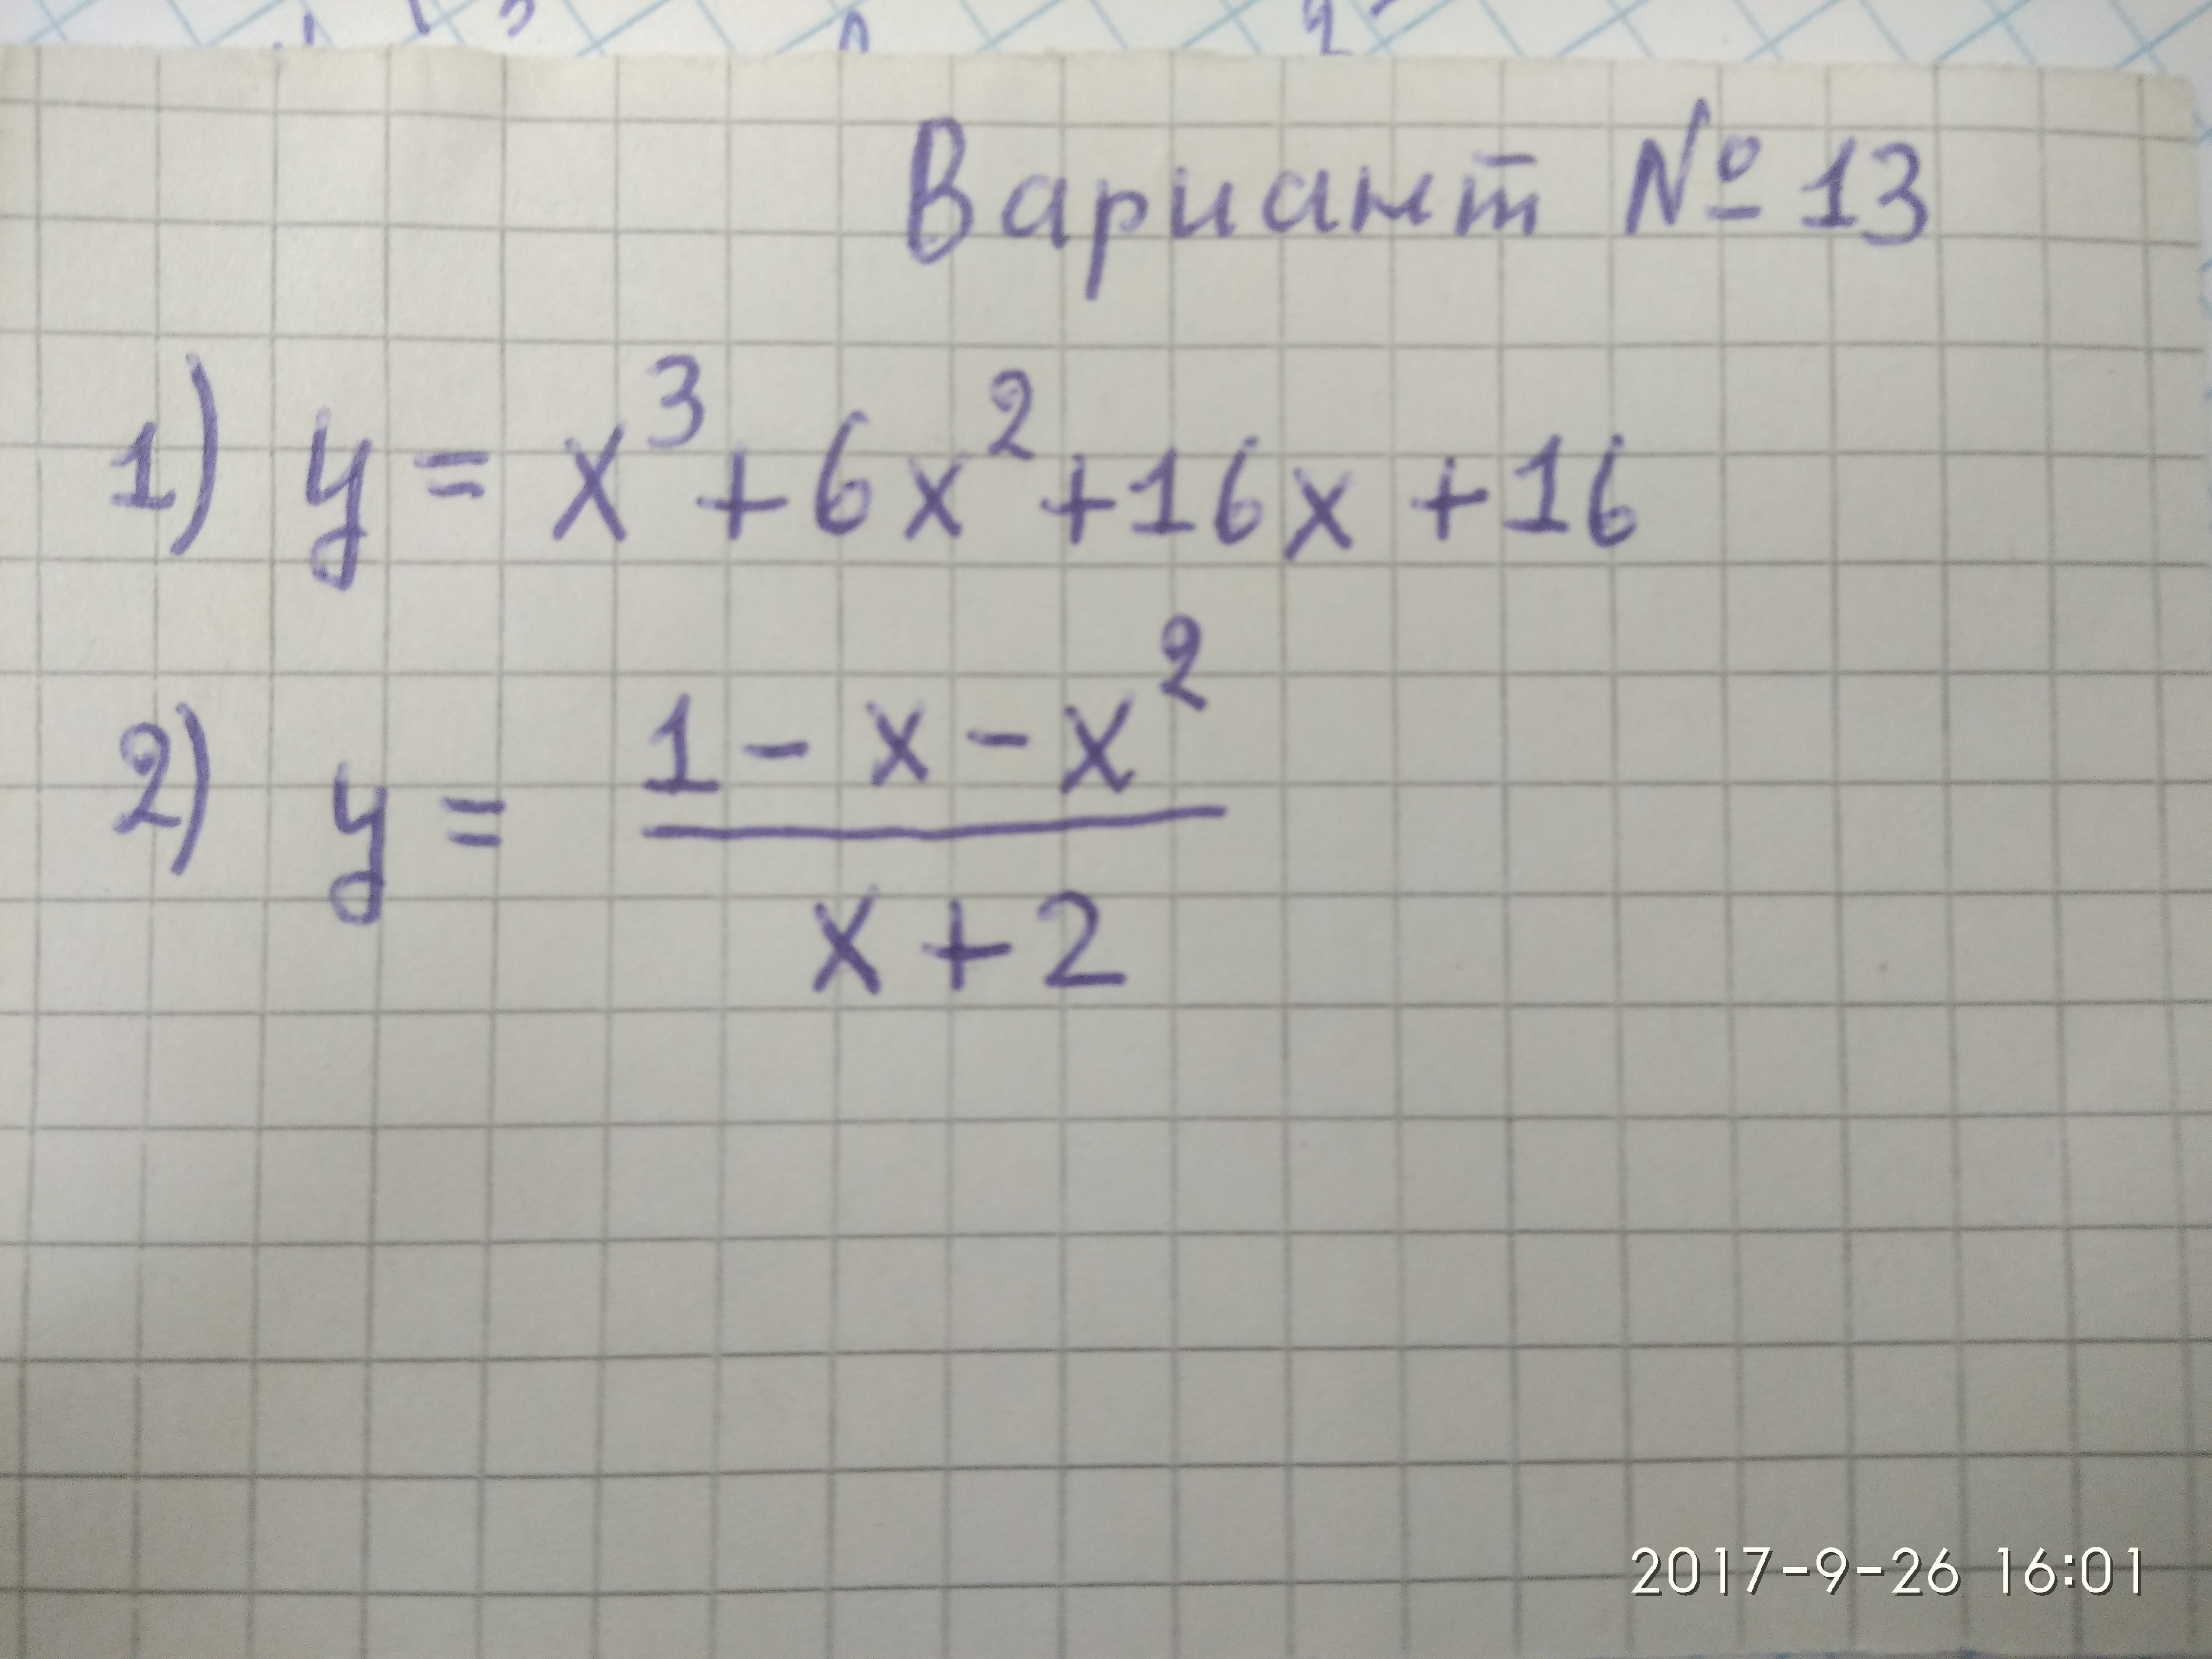 Вариант № 13
1) y = x³ + 6x² + 16x + 16
2) y = (1 - x - x²) / (x + 2)
2017-9-26 16:01